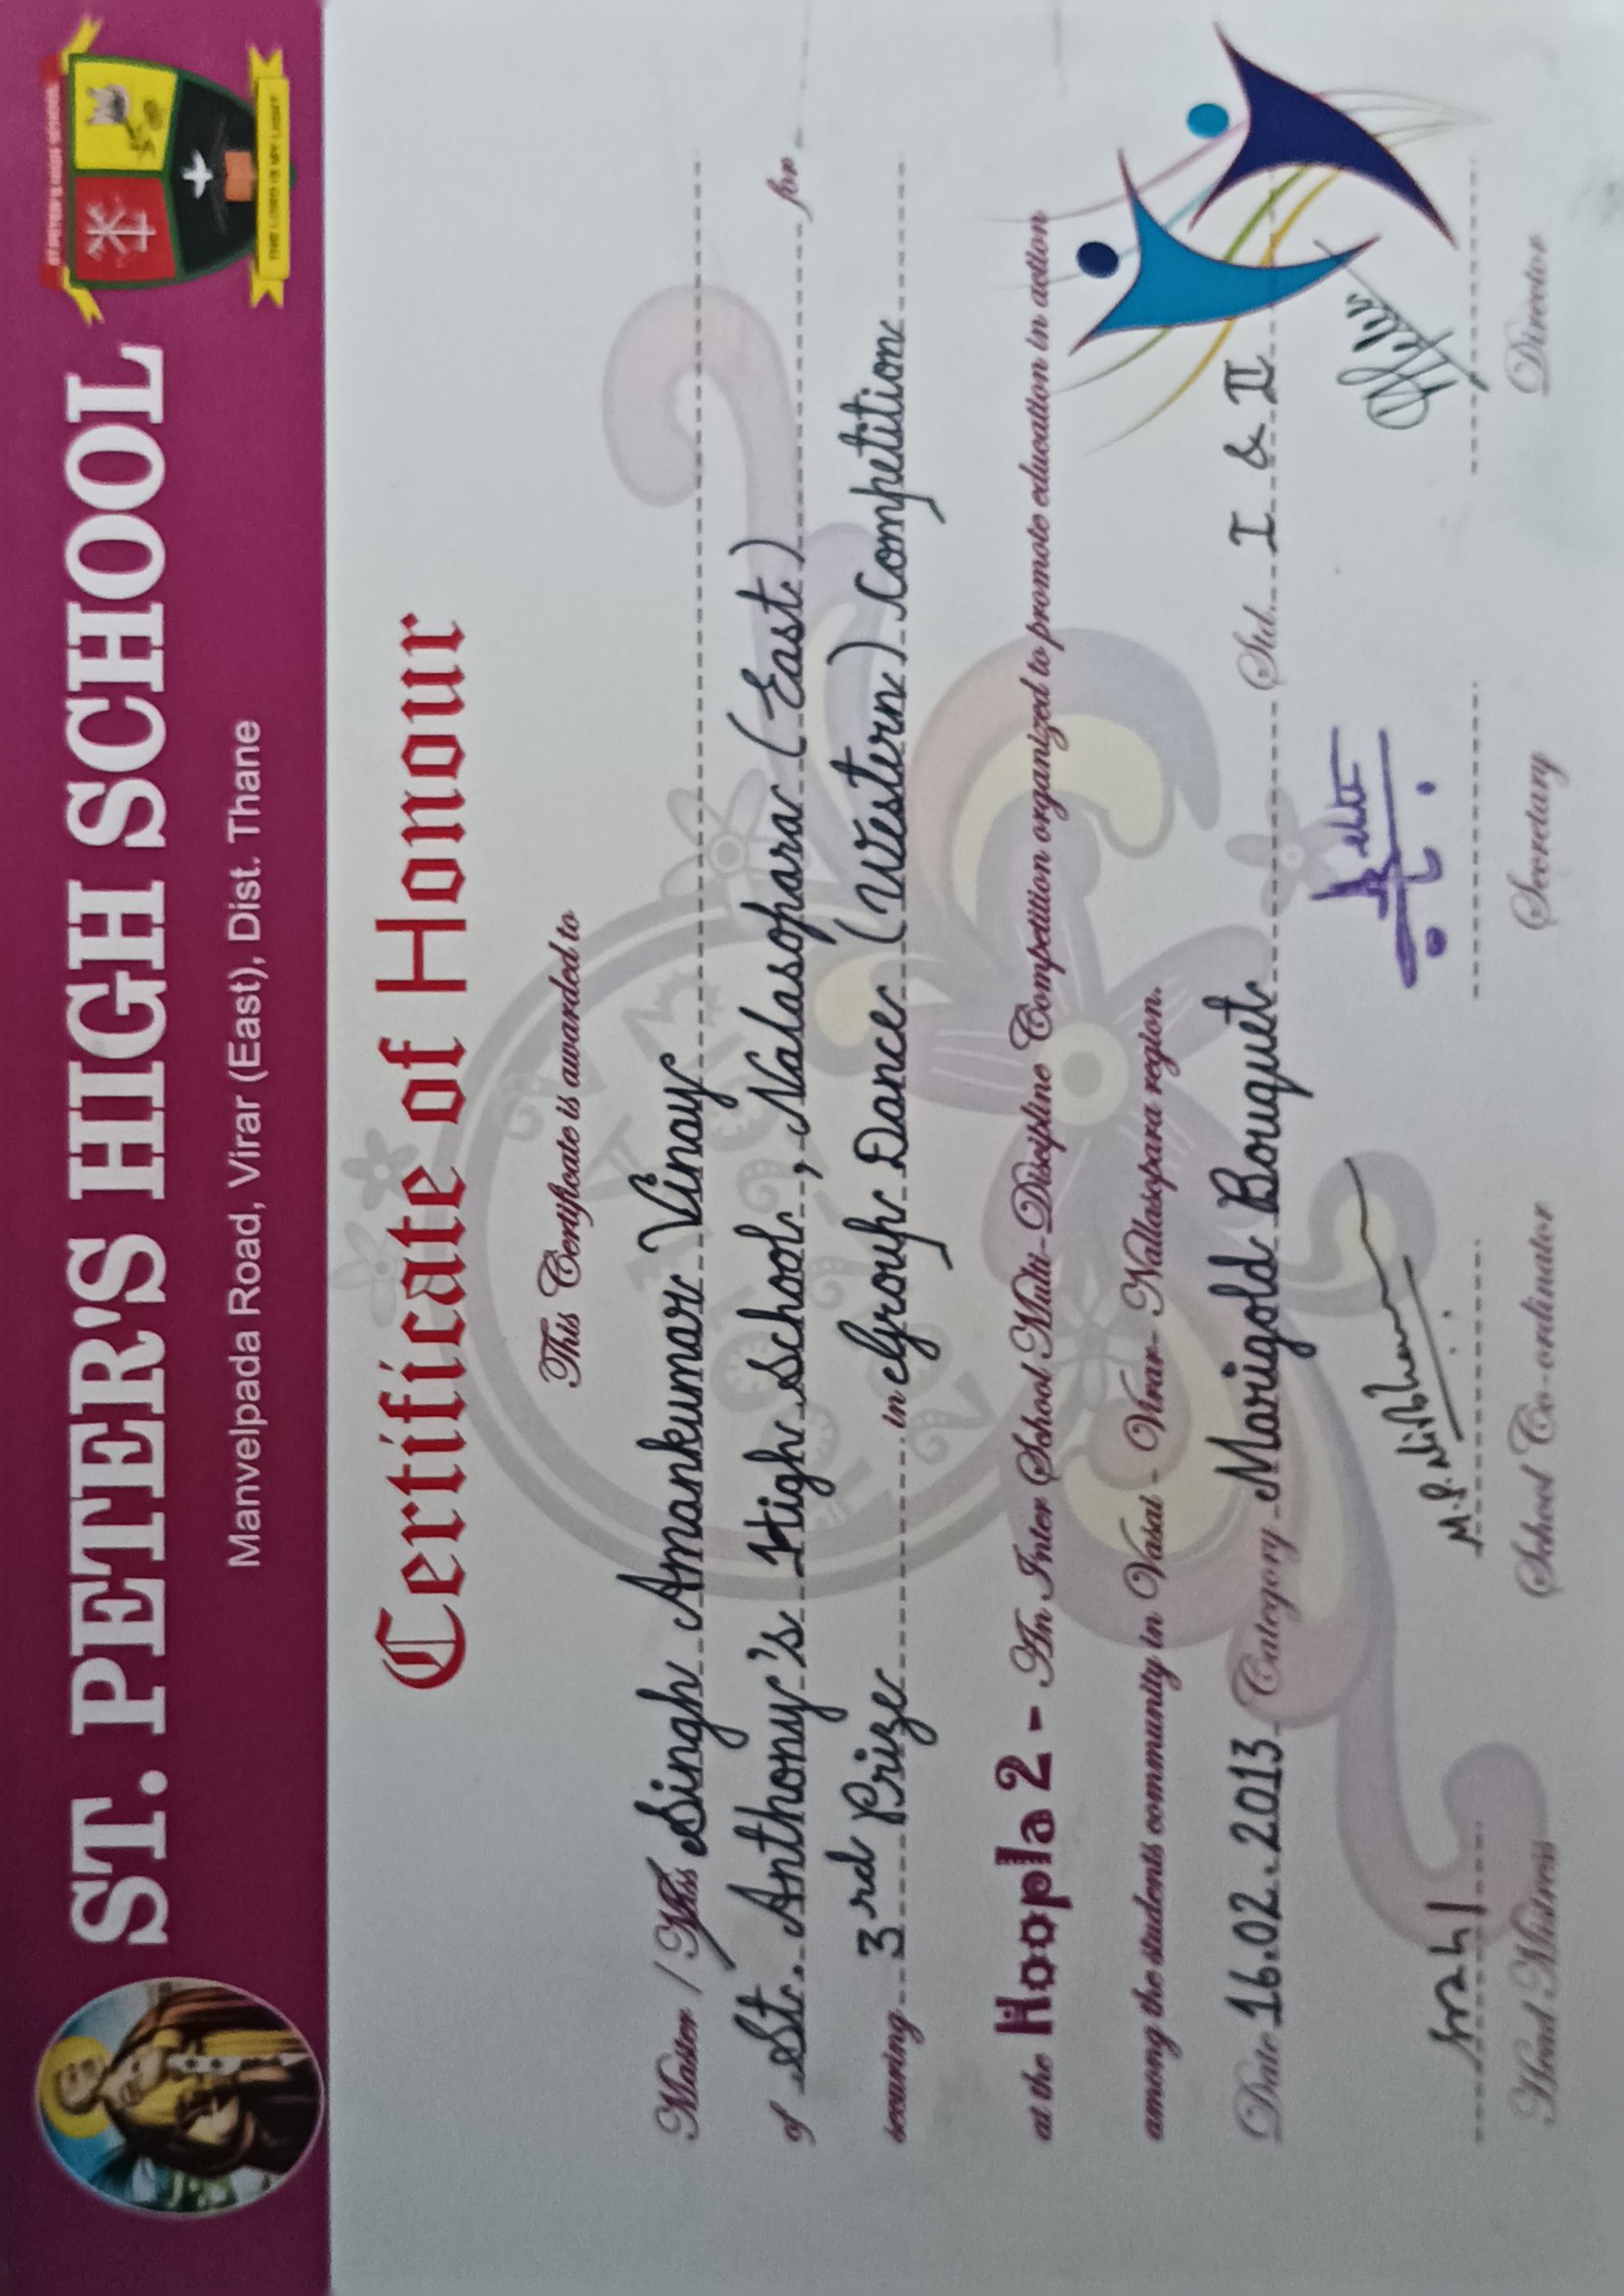 ST. PETER'S HIGH SCHOOL
Manvelpada Road, Virar (East), Dist. Thane
ST. PETER'S HIGH SCHOOL
THE LORD IS MY LIGHT
Certificate of Honour
This Certificate is awarded to
Master / Miss Singh Amankumar Vinay
of St. Anthony's High School, Nalasopara (East) for
securing 3rd Prize in Group Dance (Western) Competition
at the Hoopla 2 - An Inter School Multi-Discipline Competition organized to promote education in action
among the students community in Vasai - Virar - Nallasopara region.
Date 16.02.2013 Category Marigold Bouquet Std. I & II
Head Mistress School Co-ordinator Secretary Director